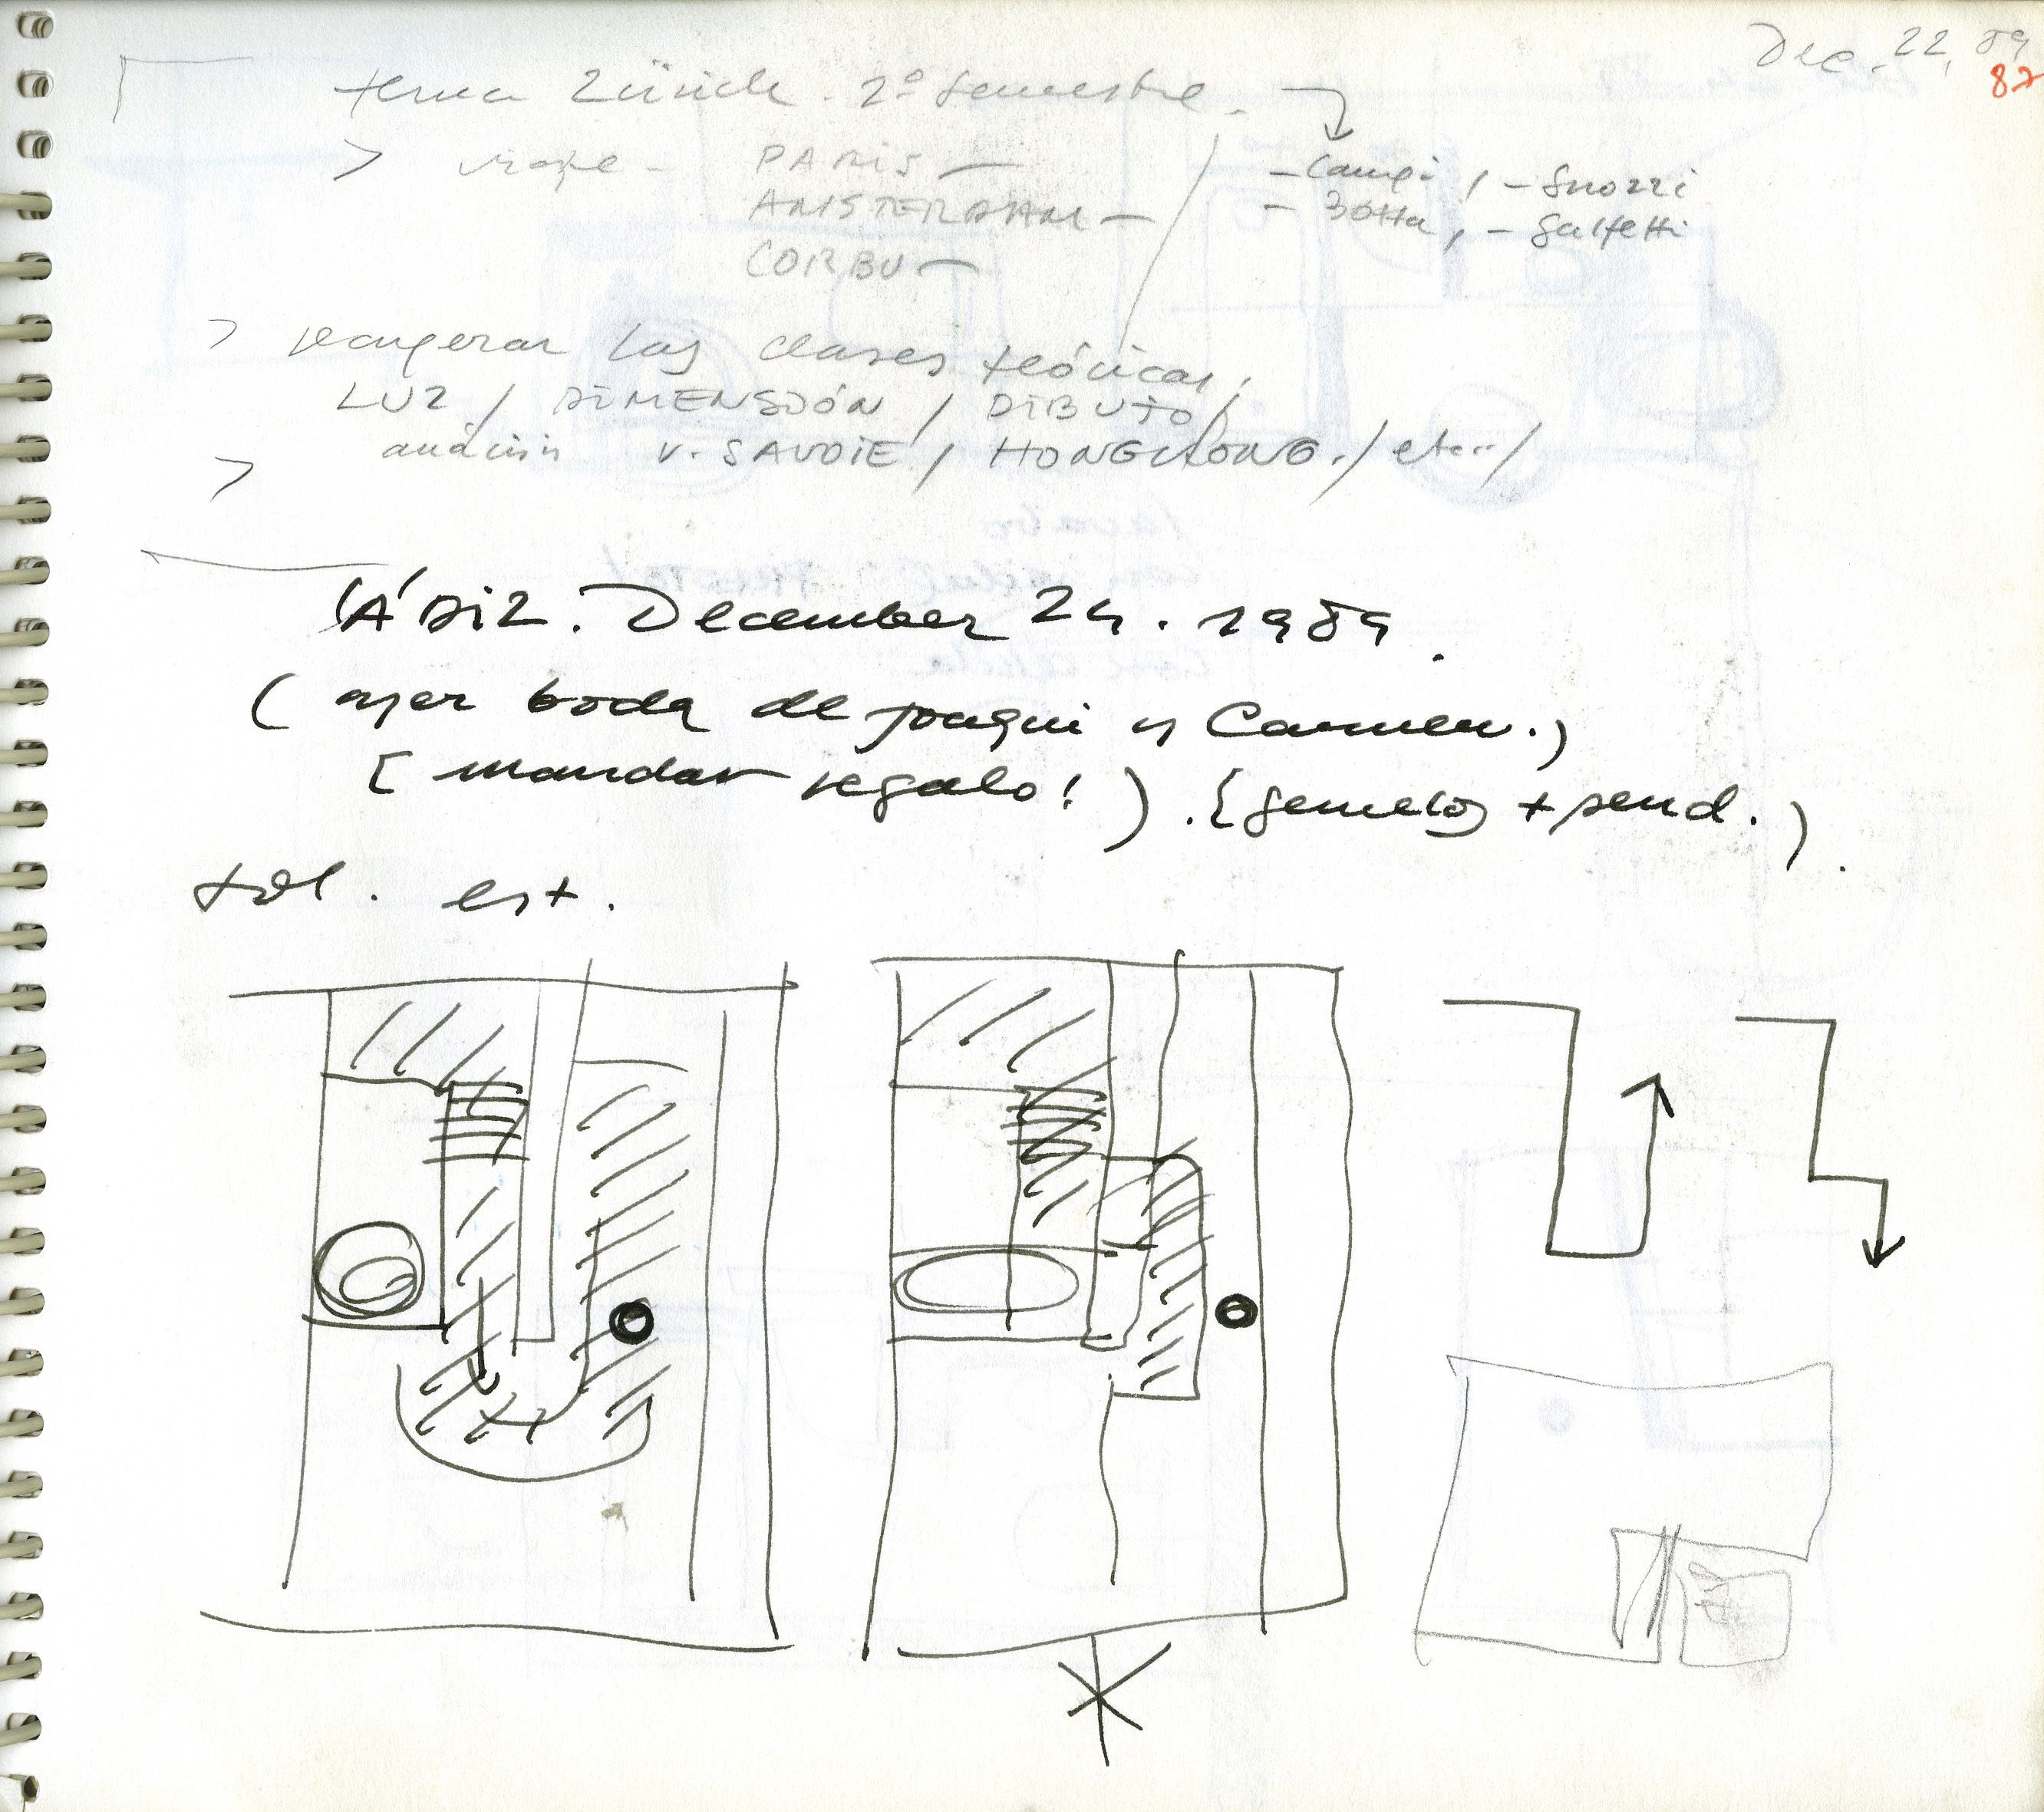 Dec. 22, 89
87
tema Zürich. 2º Semestre.
> viaje - PARIS - - Campi, - Snozzi
AMSTERDAM - - Botta, - Galfetti
CORBU -
> recuperar las clases teóricas,
LUZ / DIMENSIÓN / DIBUJO /
análisis V. SAVOIE / HONGKONG. / etc../
>
CÁDIZ. December 24. 1989.
( ayer boda de Joaqui y Carmen.)
[ mandar regalo! ) . { gemelos + pend. ) .
est.